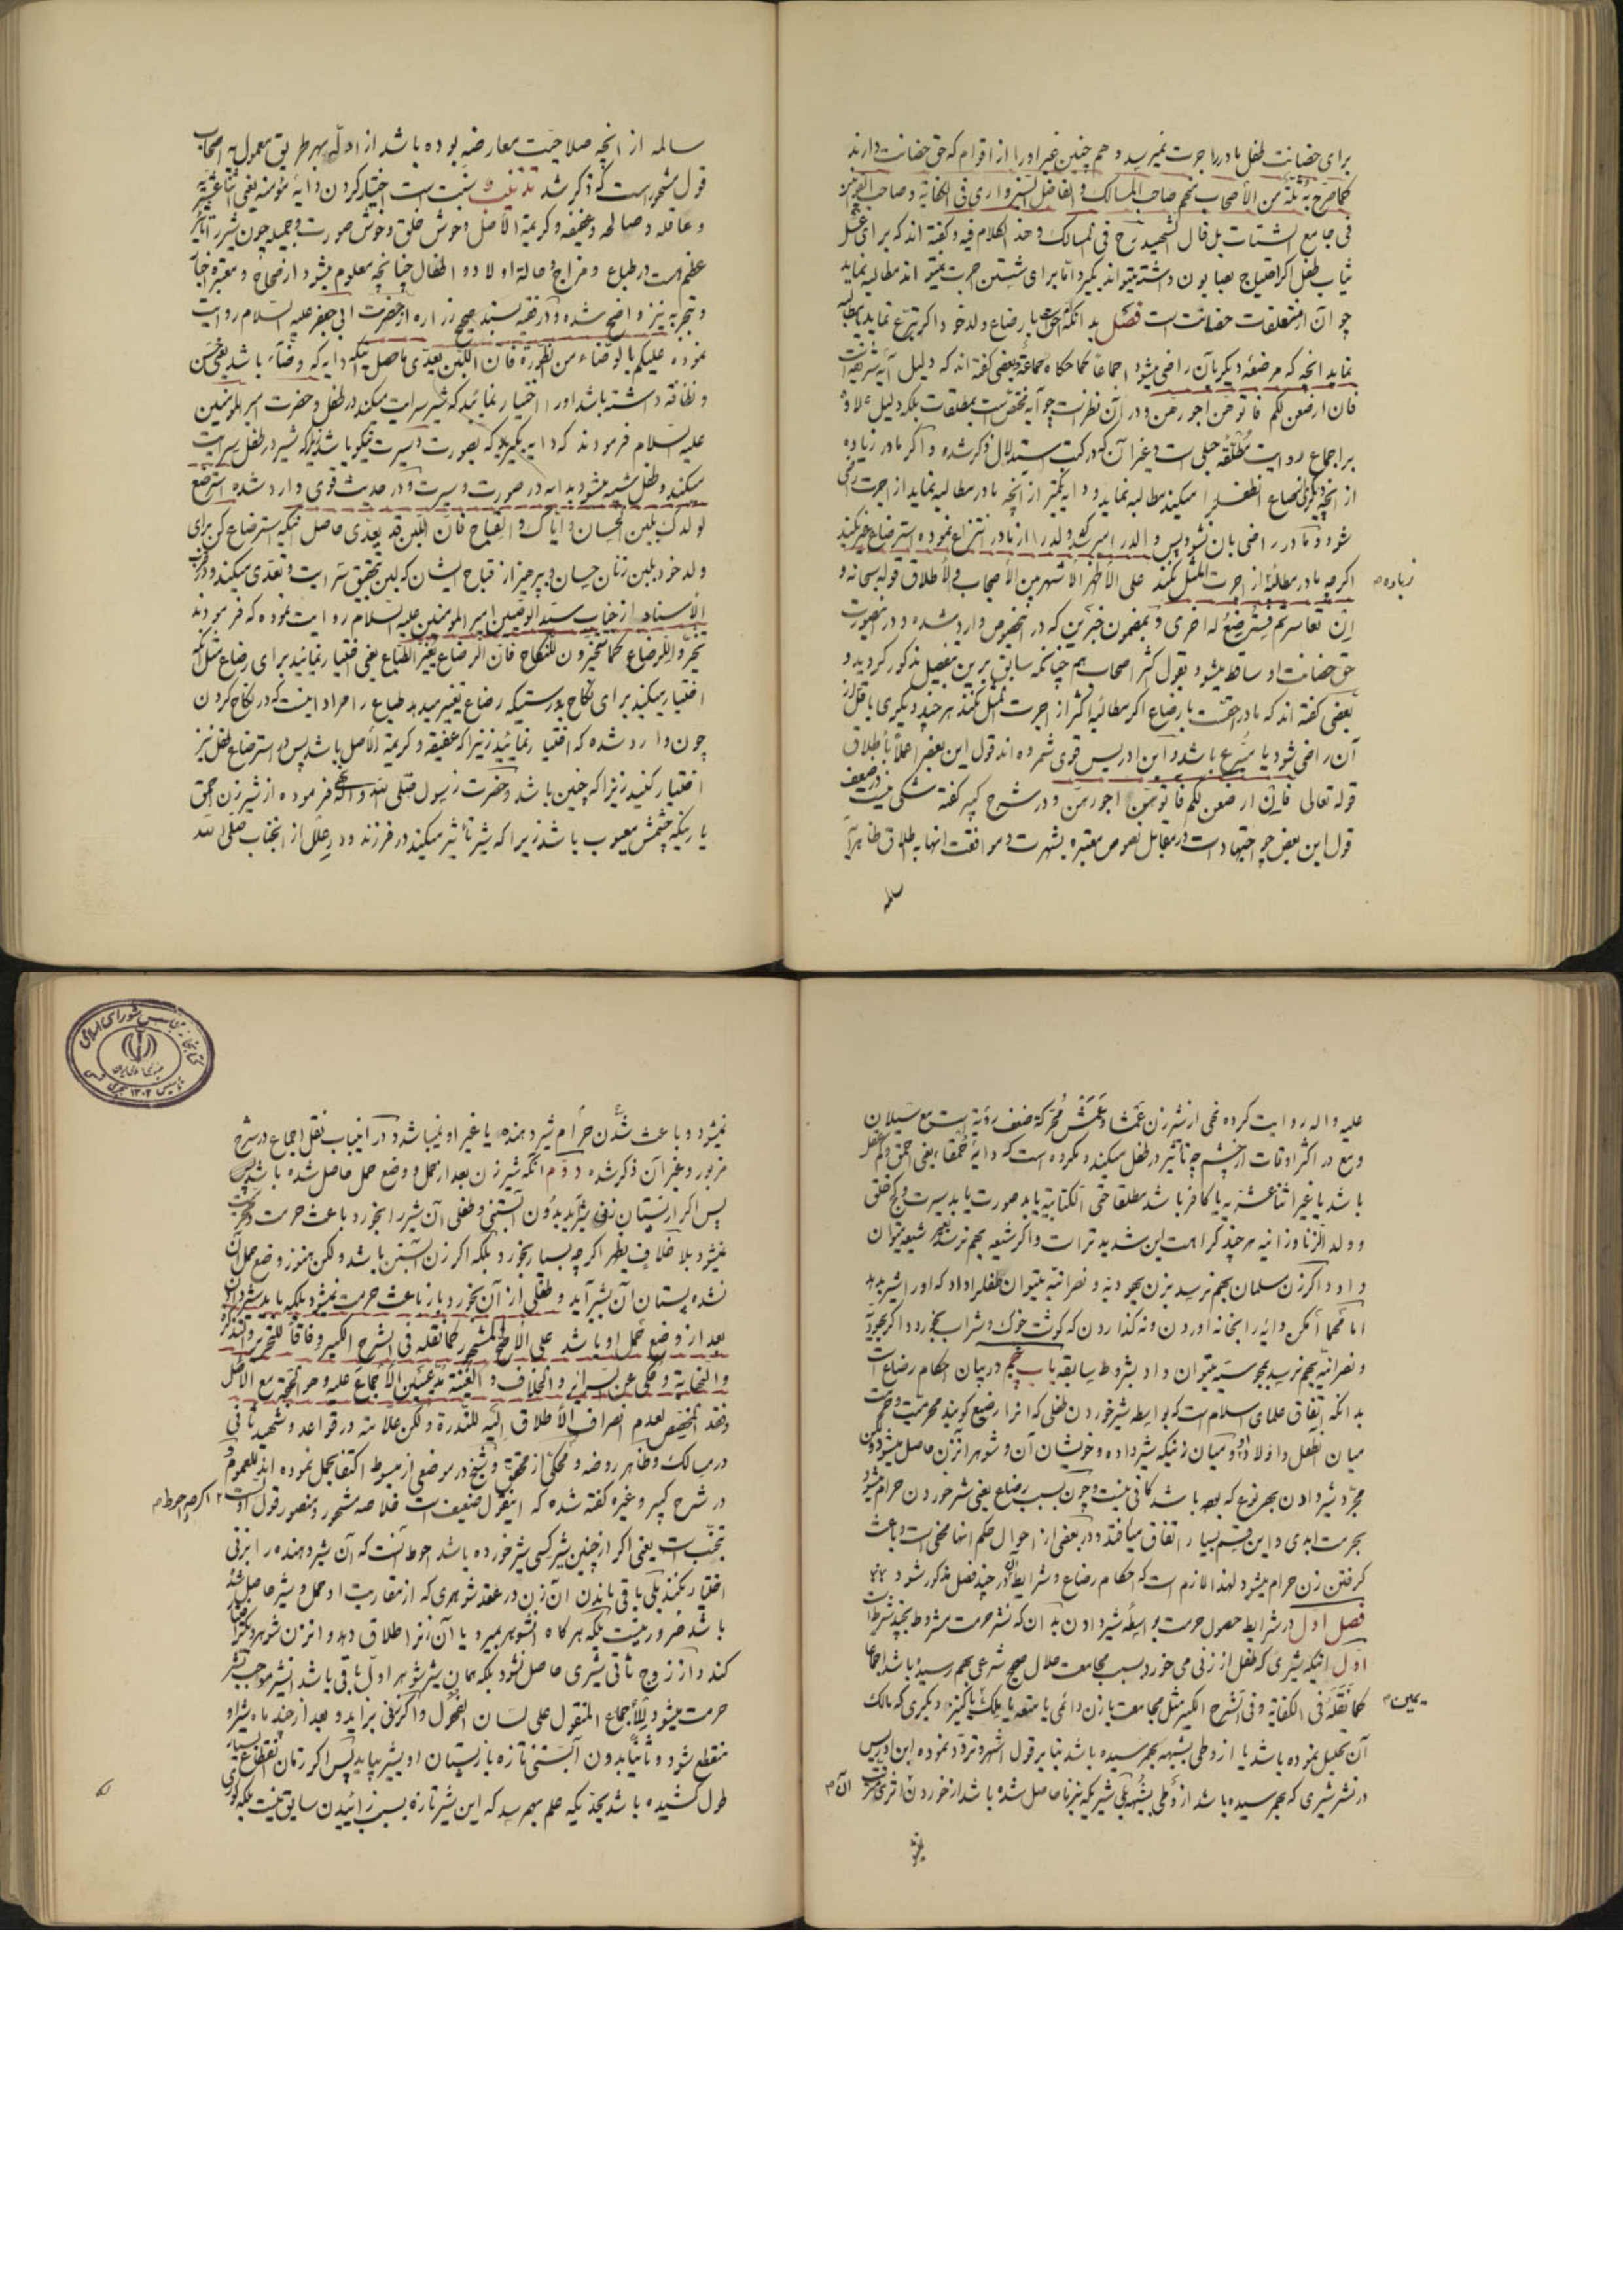 برای حضانت طفل مادر را اجرت نمیرسد و هم چنین غیر او را از اقوام که حق حضانت دارند
کما صرح به ثلة من الأصحاب منهم صاحب المسالک و الفاضل السبزواری فی الکفایة و صاحب
فی جامع الشتات بل قال الشهید ره فی المسالک و هذا الکلام فیه و گفته اند که برای غسل
ثیاب طفل اگر احتیاج بصابون داشته میتواند بگیرد اما برای شستن اجرت نمیتواند مطالبه نماید
چو آن از متعلقات حضانت است فصل بدانکه احق بارضاع ولد خود اگر تبرع نماید یا مطالبه
نماید انچه که مرضعه دیگر بآن راضی میشود اجماعًا کما حکاه جماعة و بعضی گفته اند که دلیل آیه شریفه
فان ارضعن لکم فاتوهن اجورهن و در آن نظر است چو آیه مختص است بمطلقات بلکه دلیل علاوه
بر اجماع روایت مطلقه حلبی است و غیر آن که در کتب استدلال ذکر شده و اگر مادر زیاده
از انچه دیگری ارضاع انطفل را میکند مطالبه نماید و دایه بکمتر از انچه مادر مطالبه نماید از اجرت راضی
شود و مادر راضی بان نشود پس والد را میرسد که ولد را از مادر انتزاع نموده استرضاع غیر بکند
اگر چه مادر مطالبهٔ از اجرت المثل نکند علی الأظهر الأشهر بین الأصحاب و لأطلاق قوله سبحانه و
زیاده
ان تعاسرتم فسترضع له اخری و بمضمون خبرین که در اینخصوص وارد شده و در اینصورت
حق حضانت او ساقط میشود بقول اکثر اصحاب هم چنانکه سابق بر این مفصل مذکور گردید و
بعضی گفته اند که مادر احقست بارضاع اگر مطالبهٔ اکثر از اجرت المثل نکند هر چند دیگری باقل از
آن راضی شود یا متبرع باشد و ابن ادریس قوی شمرده اند قول این بعض را عملاً باطلاق
قوله تعالی فان ارضعن لکم فاتوهن اجورهن و در شرح کبیر گفته شکی نیست در ضعف
قول این بعض چو اجتهاد است در مقابل نصوص معتبره بشهرت و موافقت انها باطلاق ظاهر آیه
سالمه
سالمه از انچه صلاحیت معارضه بوده باشد از ادله بهر طریق معمول به اصحاب
قول مشهور است که ذکر شد تذنیب و سنت است اختیار کردن دایهٔ مؤمنه یعنی اثنا عشریه
و عاقله و صالحه و عفیفه و کریمة الأصل و خوش خلق و خوش صورت و جمیله چون شیر را تأثیر
عظیم است در طباع و مزاج و حالة اولاد و اطفال چنانچه معلوم میشود از صحاح و معتبره اخبار
و تجربه نیز واضح شده و در فقیه بسند صحیح زراره از حضرت ابی جعفر علیه السلام روایت
نموده علیکم بالوضاء من الظورة فان اللبن یعدی حاصل اینکه دایه که وضاء باشد یعنی حسن
و نظافة داشته باشد او را اختیار نمائید که شیر سرایت میکند در طفل و حضرت امیر المؤمنین
علیه السلام فرمودند که دایه بگیرید که بصورت و سیرت نیکو باشد زیرا که شیر در طفل سرایت
میکند و طفل شبیه میشود بدایه در صورت و سیرت و در حدیث قوی وارد شده استرضع
لولدک بلبن الحسان و ایاک و القباح فان اللبن قد یعدی حاصل اینکه استرضاع کن برای
ولد خود بلبن زنان حسان و بپرهیز از قباح ایشان که لبن بتحقیق سرایت و تعدی میکند و در قرب
الأسناد از جناب سید الوصیین امیر المؤمنین علیه السلام روایت نموده که فرمودند
تخیروا للرضاع کما تتخیرون للنکاح فان الرضاع یغیر الطباع یعنی اختیار نمائید برای رضاع مثل انکه
اختیار میکنید برای نکاح بدرستیکه رضاع تغییر میدهد طباع را مراد اینست که در نکاح کردن
چون وارد شده که اختیار نمائید زنیرا که عفیفه و کریمة الأصل باشد پس در استرضاع طفل نیز
اختیار کنید زنیرا که چنین باشد و حضرت رسول صلی الله و اله نهی فرموده از شیر زن احمق
یا زنیکه چشمش معیوب باشد زیرا که شیر تأثیر میکند در فرزند و در علل از انجناب صلی الله
علیه و اله روایت کرده نهی از شیر زن عمشا و عمش محرکة ضعف رؤیة است مع سیلان
دمع در اکثر اوقات از چشم چه تأثیر در طفل میکند و مکروه است که دایهٔ حمقاء یعنی احمق و کم عقل
باشد یا غیر اثنا عشریه یا کافر باشد مطلقا حتی الکتابیة یا بد صورت یا بد سیرت و کج خلق
و ولد الزنا و زانیه هر چند کراهت این شدیدتر است و اگر شیعه بهم نرسد بغیر شیعه میتوان
داد و اگر زن مسلمان بهم نرسد بزن یهودیه و نصرانیه میتوان طفل را داد که او را شیر بدهد
اما مهما امکن دایه را بخانه اوردن و نگذاردن که گوشت خوک و شراب بخورد و اگر یهودیه
و نصرانیه بهم نرسد بمجوسیه میتوان داد بشروط سابقه باب پنجم در بیان احکام رضاع است
بدانکه باتفاق علمای اسلام است که بواسطه شیر خوردن طفلی که انرا رضیع گویند محرمیت و حرمت
میان انطفل و اولاد او و میان زنیکه شیر داده و خویشان آن و شوهر انزن حاصل میشود ولکن
مجرد شیر دادن بهر نوع که بوده باشد کافی نیست و چون بسبب رضاع یعنی شیر خوردن حرام میشود
بحرمت ابدی و این قسم بسیار اتفاق میافتد و در بعضی از احوال حکم انها مخفی است و باعث
گرفتن زن حرام میشود لهذا لازم است که احکام رضاع و شرایط آن در چند فصل مذکور شود
فصل اول در شرایط حصول حرمت بواسطهٔ شیر دادن بدان که نشر حرمت مشروط بچند شرط است
اول اینکه شیری که طفل از زنی می خورد بسبب مجامعت حلال صحیح شرعی بهم رسیده باشد اجماعا
کما نقله فی الکفایة و فی الشرح الکبیر مثل مجامعت با زن دائمی یا متعه یا بملک یا کنیز دیگری که مالک
یمین
آن تحلیل نموده باشد یا از وطی بشبهه بهم رسیده باشد بنا بر قول اشهر و تردد نموده ابن ادریس
در نشر شیری که بهم رسیده باشد از وطی بشبهه بلی شیریکه بزنا حاصل شده باشد از خوردن ان
نمیشود و باعث شدن حرام شیر دهنده یا غیر او نمیباشد و در اینباب نقل اجماع در شرح
مزبور و غیر آن ذکر شده دوم انکه شیر زن بعد از حمل و وضع حمل حاصل شده باشد
پس اگر از پستان زنی شیر آید بدون آبستنی و طفلی آن شیر را بخورد باعث حرمت
نمیشود بلا خلاف یظهر اگر چه بسیار بخورد بلکه اگر زن آبستن باشد ولکن هنوز وضع حمل آن
نشده پستان آن بشیر آید و طفلی از آن بخورد باز باعث حرمت نمیشود بلکه باید شیر دادن
بعد از وضع حمل او باشد علی الأظهر الأشهر کما نقله فی الشرح الکبیر وفاقا للتحریر و التذکرة
و النهایة و حکی عن السرائر و الخلاف و الغنیة مدعین الأجماع علیه و هو الحجة مع الأصل
و فقد المخصص لعدم انصراف الأطلاق الیه للندرة ولکن علامه در قواعد و شهید ثانی
در مسالک و ظاهر روضه و محکی از محقق و شیخ در موضعی از مبسوط اکتفا بحمل نموده اند للعموم و
در شرح کبیر و غیره گفته شده که اینقول ضعیف است خلاصه مشهور و منصور قول اول است
تجنب است یعنی اگر از چنین شیر کسی شیر خورده باشد احوط آنست که آن شیر دهنده را بزنی
اختیار نکند بلی باقی ماندن آن زن در عقد شوهری که از مقاربت او حمل و شیر حاصل شده
باشد ضرور نیست بلکه هر گاه انشوهر بمیرد یا آن زنرا طلاق دهد و انزن شوهر دیگر اختیار
کند و از زوج ثانی شیری حاصل نشود بلکه همان شیر شوهر اول باقی باشد انشیر موجب نشر
حرمت میشود للأجماع المنقول علی لسان الفحول و اگر زنی بزاید و بعد از چند ماه شیر او
منقطع شود و ثانیًا بدون آبستنی تازه باز پستان او بشیر بیاید پس اگر زمان انقطاع
طول کشیده باشد بحدیکه علم بهم رسد که این شیر تازه بسبب زائیدن سابق نیست بلکه
کتابخانه مجلس شورای اسلامی